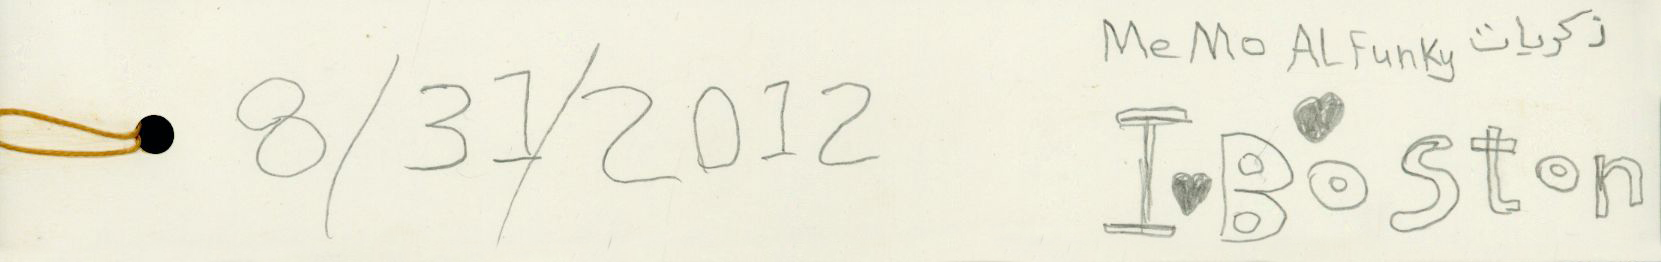 8/31/2012
MeMo ALFunky ذكريات
I ♥ Boston